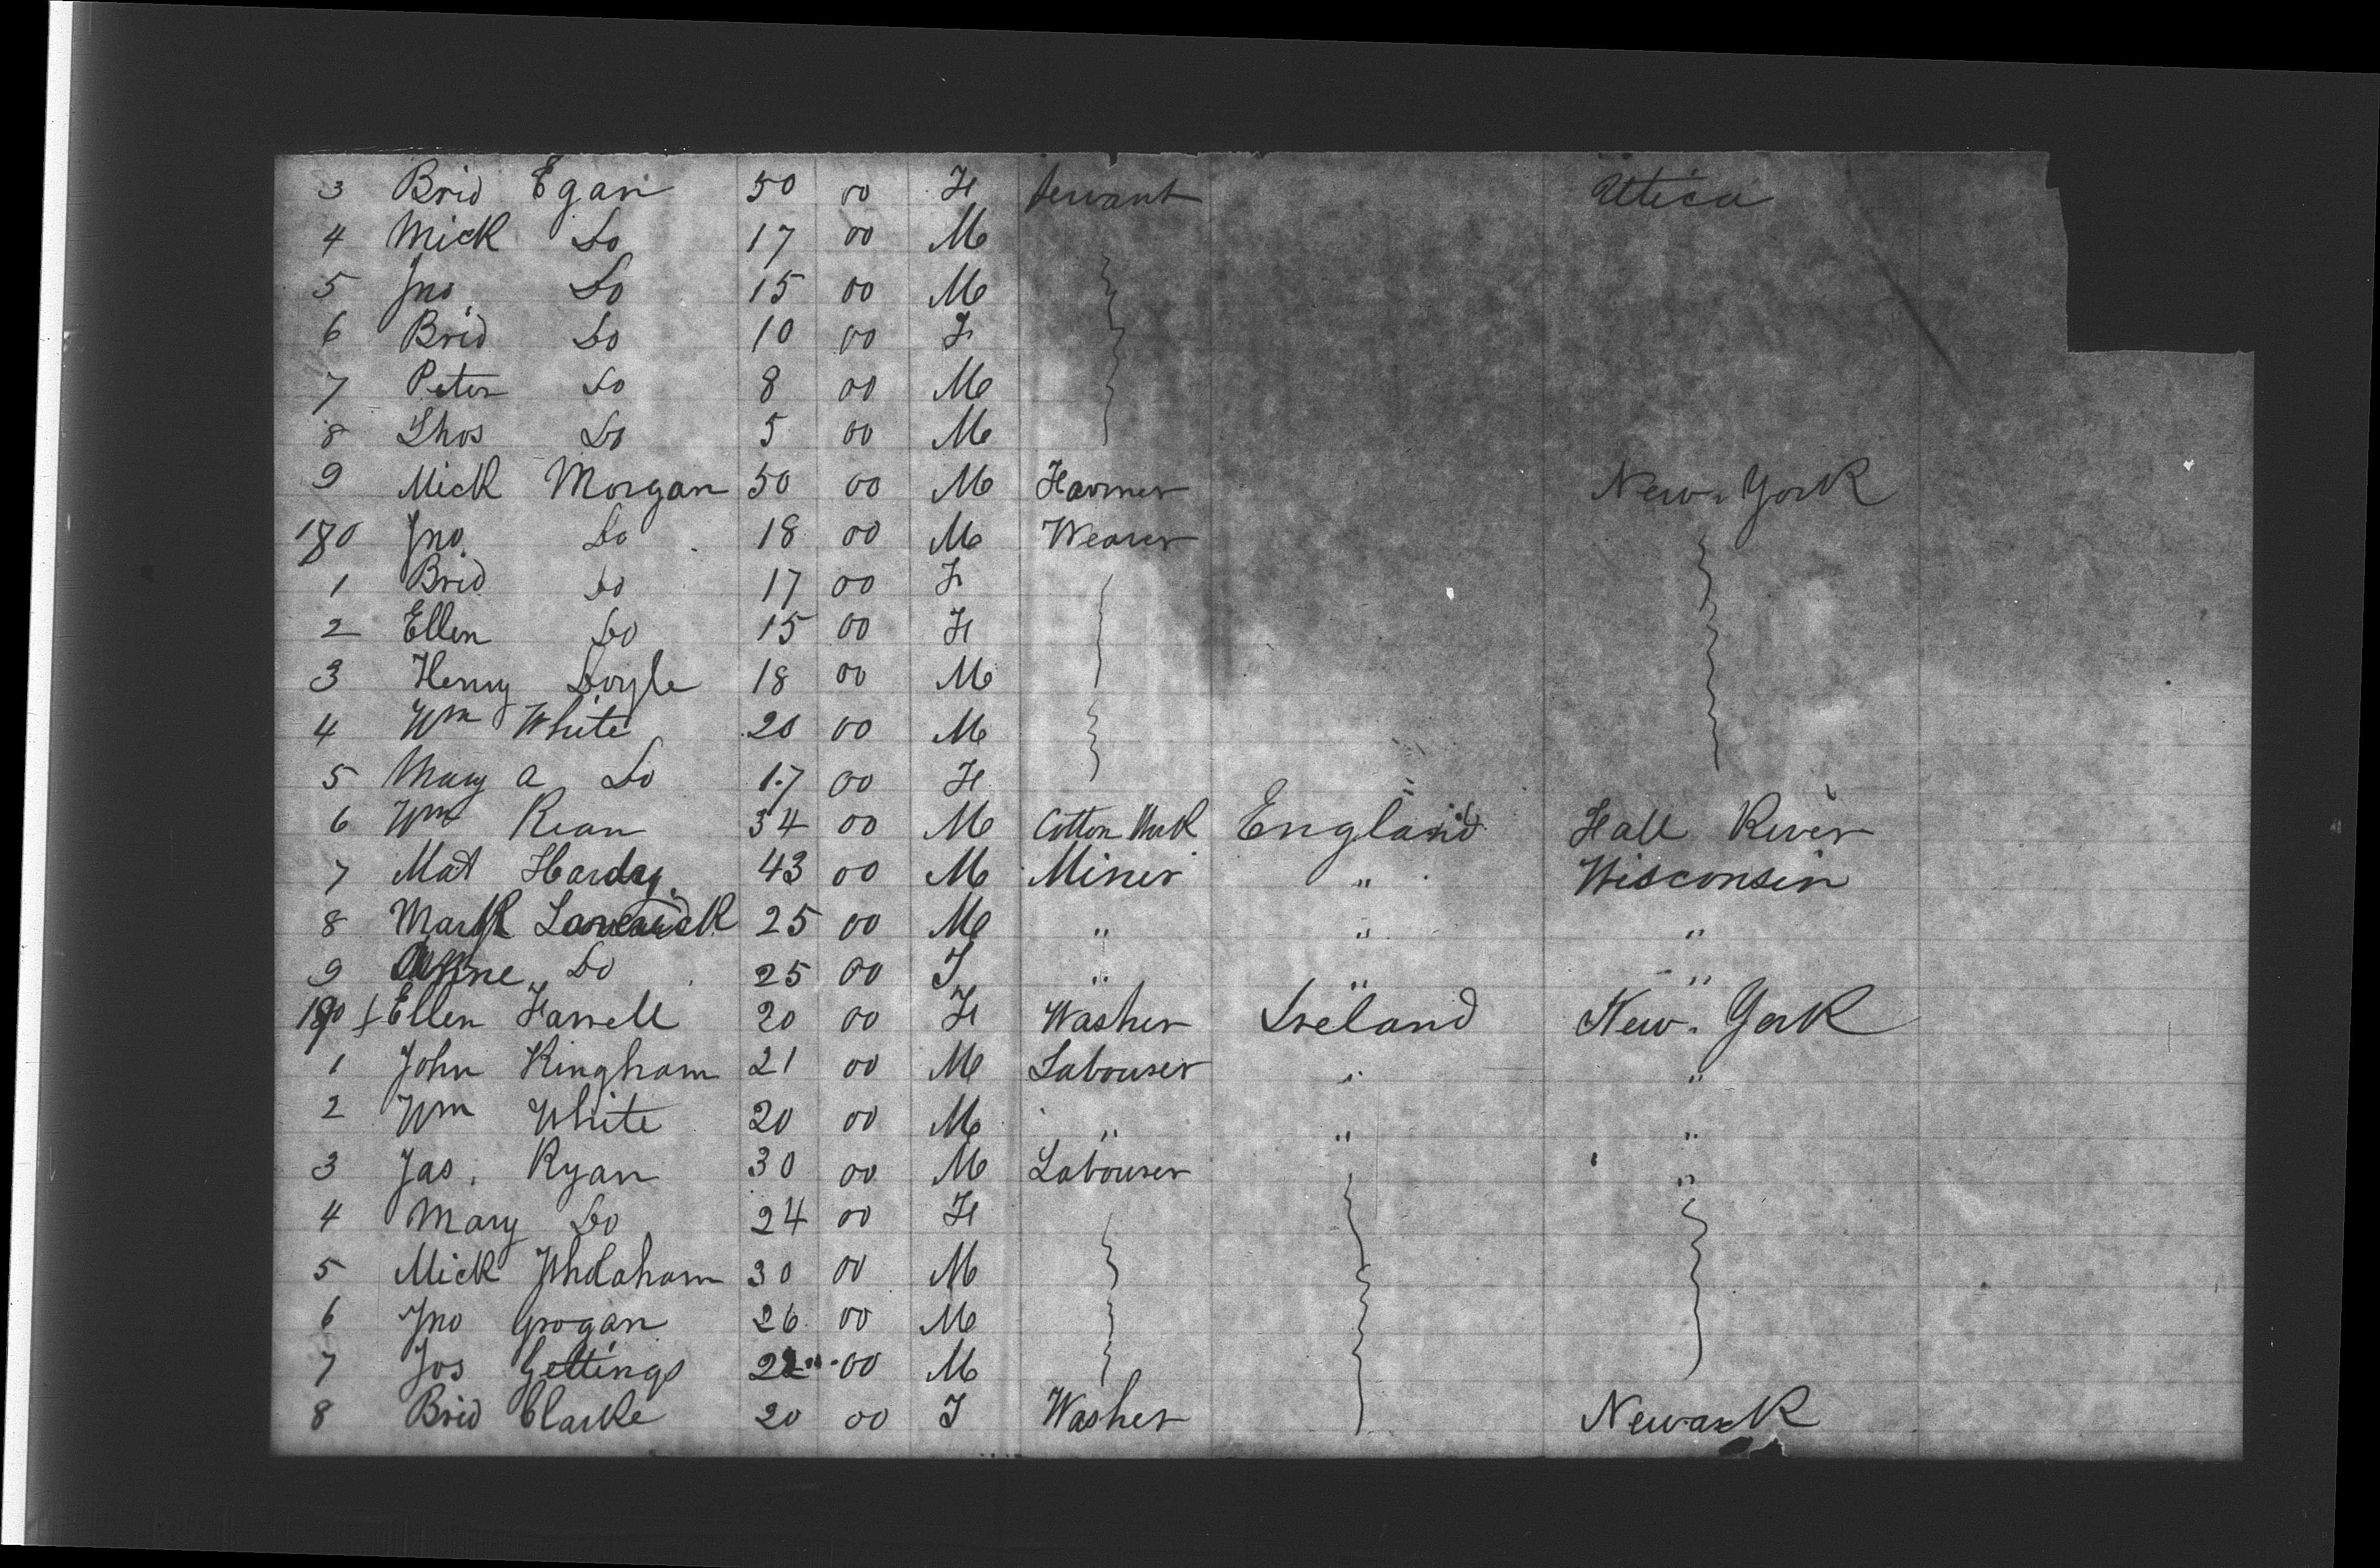 3 Brid Egan 50 00 F Servant Utica
4 Mick Do 17 00 M
5 Jno. Do 15 00 M
6 Brid Do 10 00 F
7 Peter Do 8 00 M
8 Thos Do 5 00 M
9 Mick Morgan 50 00 M Farmer New York
180 Jno. Do 18 00 M Weaver
1 Brid Do 17 00 F
2 Ellen Do 15 00 F
3 Henry Doyle 18 00 M
4 Wm White 20 00 M
5 Mary A Do 17 00 F
6 Wm Kean 34 00 M Cotton England Fall River
7 Mat Harday 43 00 M Miner " Wisconsin
8 Mark 25 00 M " " "
9 Anne Do 25 00 F " " "
190 Ellen Farrell 20 00 F Washer Ireland New York
1 John Kingham 21 00 M Labourer " "
2 Wm White 20 00 M " " "
3 Jas. Ryan 30 00 M Labourer "
4 Mary Do 24 00 F
5 Mick 30 00 M
6 Jno Grogan 26 00 M
7 Jos Gettings 22 00 M
8 Brid Clarke 20 00 F Washer Newark